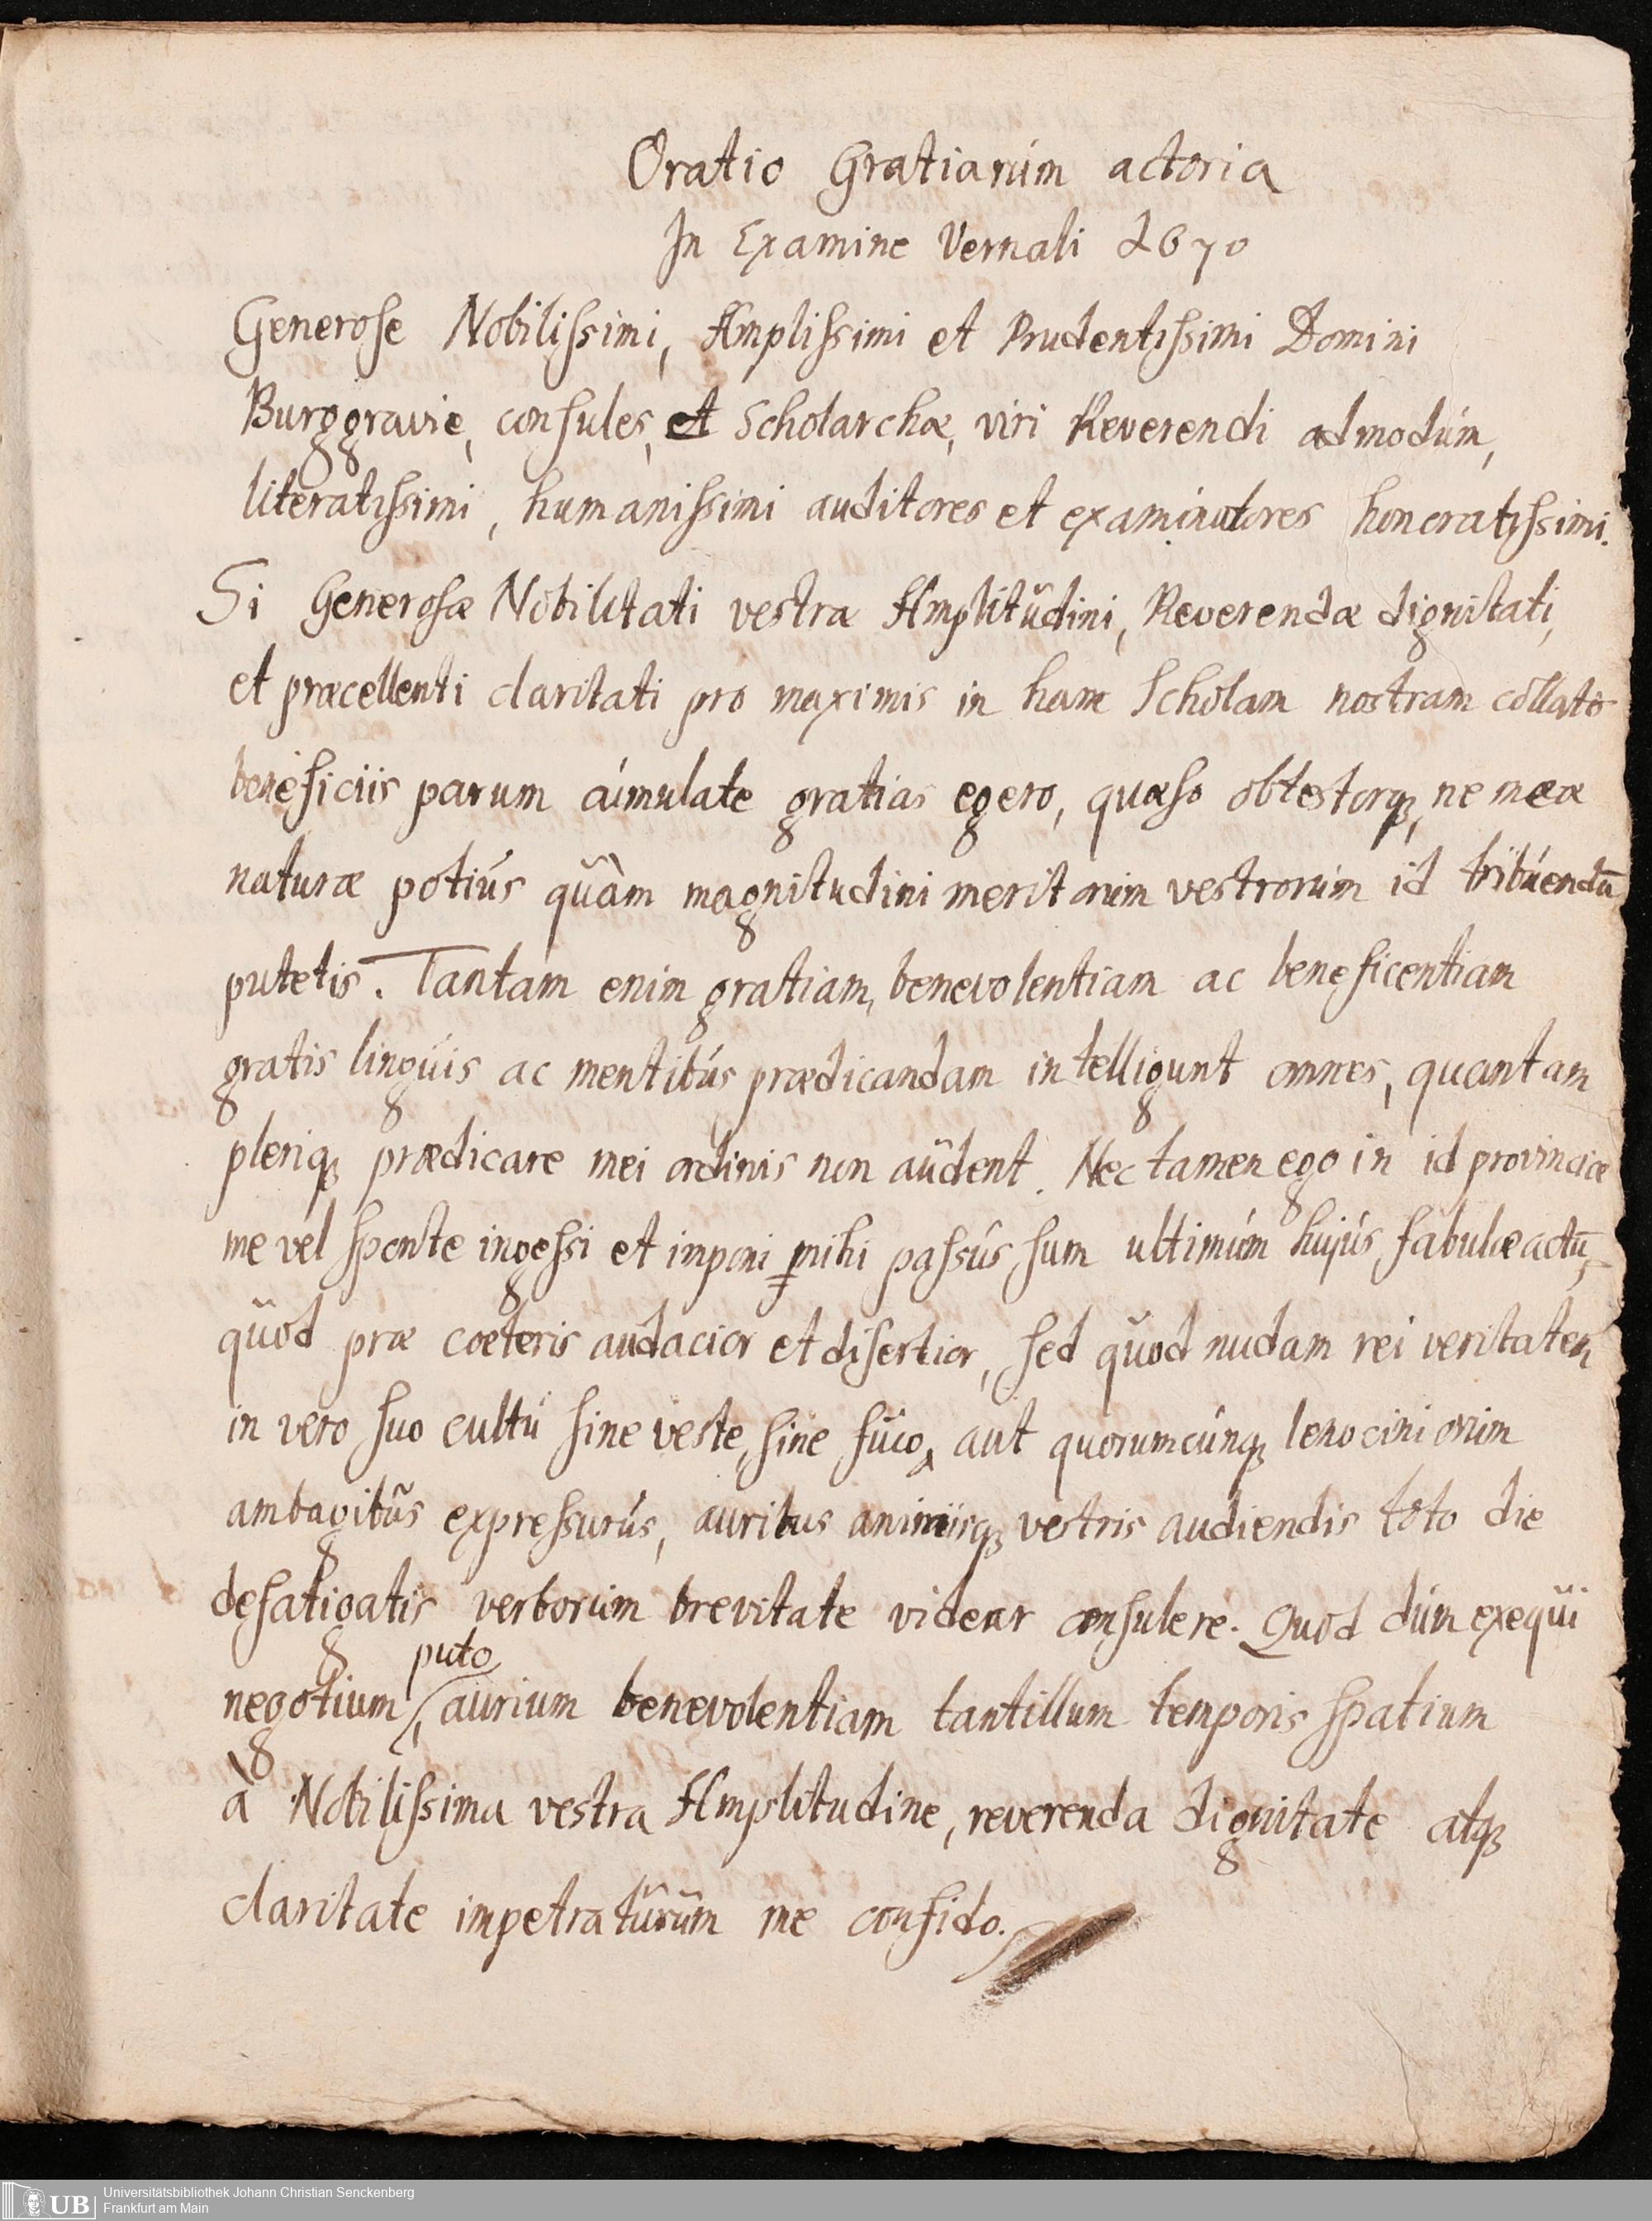 Oratio Gratiarúm actoria
In Examine Vernali 1670
Generose Nobilissimi, Amplissimi et Prudentissimi Domini
Burggravie, consules, et Scholarchæ, viri Reverendi admodúm,
literatissimi, humanissimi auditores et examinatores honoratissimi.
Si Generosæ Nobilitati vestræ Amplitŭdini, Reverendæ dignitati,
et præcellenti claritati pro maximis in hanc Scholam nostram collatis
beneficiis parum aúmulate gratias egero, quæso obtestorq̨, ne meæ
naturæ potiús qŭàm magnitudini meritorúm vestrorúm id tribúendū
putetis. Tantam enim gratiam, benevolentiam ac beneficentiam
gratis lingŭis ac mentibús prædicandam intelligunt omnes, quantam
pleriq̨ prædicare mei ordinis non aŭdent. Nec tamen ego in id provinciæ
me vel sponte ingessi et imponi mihi passús sum ultimúm hujús fabulæ actū,
qŭod præ coeteris audacior et disertior, sed qŭod nudam rei veritatem
in vero suo cultú sine veste, sine fŭco, aut quorumcúnq̨ lenociniorúm
ambagibŭs expressurús, auribus animisq̨ vestris audiendis toto die
defatigatis verborúm brevitate videar consulere. Quod dúm exeqŭi
puto
negotium, aurium benevolentiam tantillum temporis spatium
à Nobilissima vestra Amplitudine, reverenda dignitate atq̨
claritate impetratŭrŭm me confido.
Universitätsbibliothek Johann Christian Senckenberg
UB
Frankfurt am Main